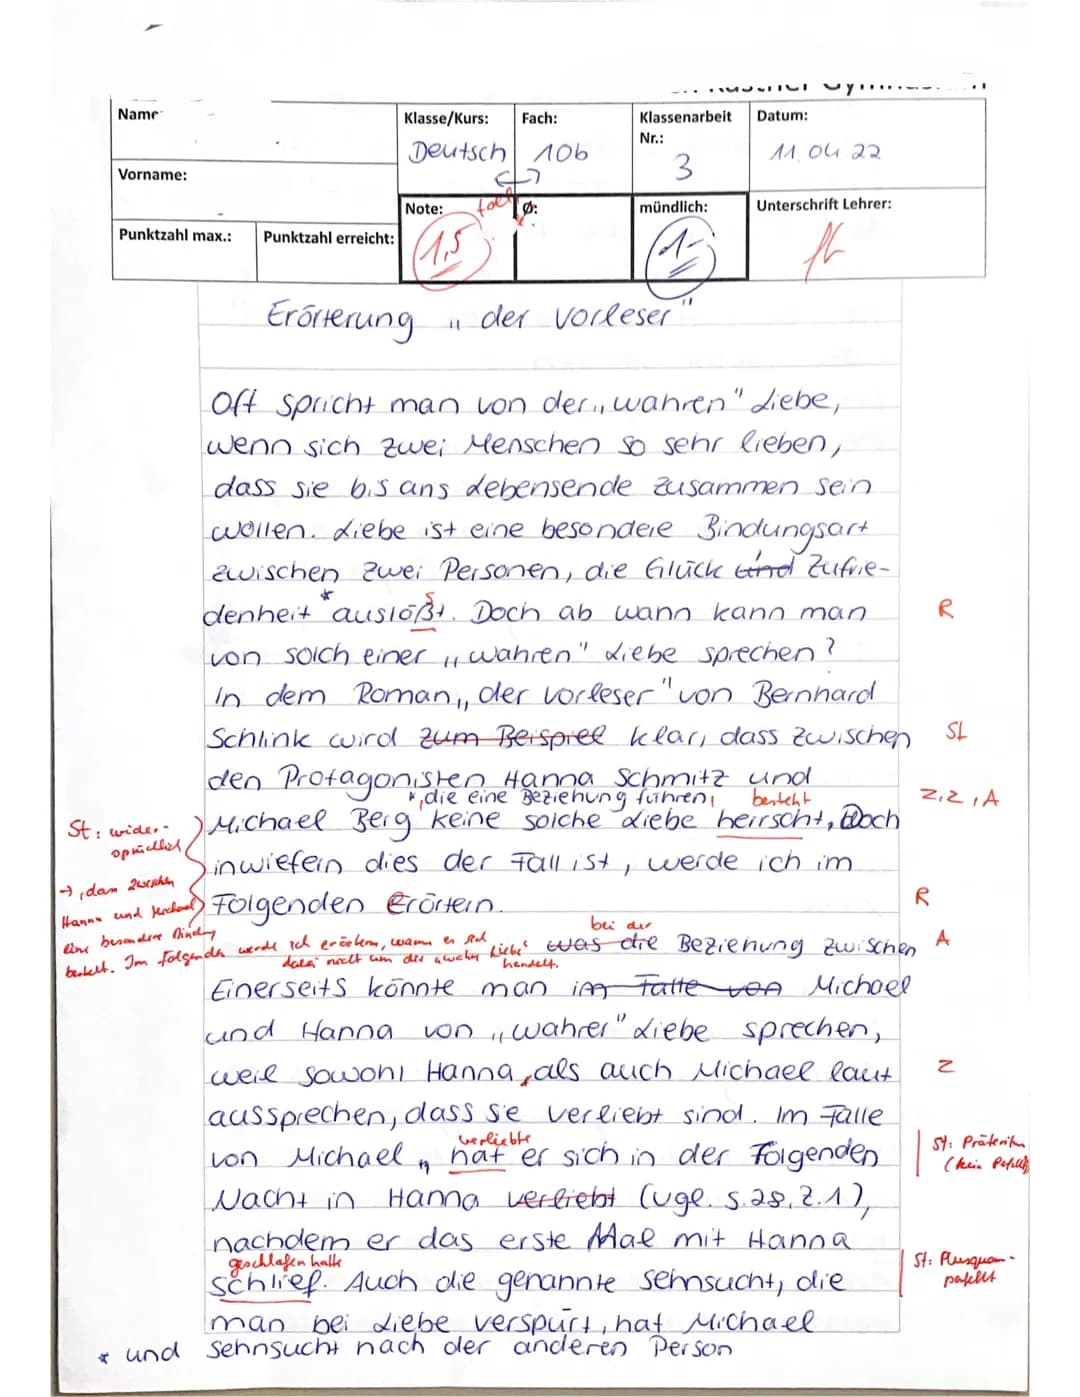 Name:
Klasse/Kurs:
Fach:
Klassenarbeit Nr.:
Datum:
Deutsch
10b
3
11.04.22
Vorname:
Note:
toll
Ø:
mündlich:
Unterschrift Lehrer:
Punktzahl max.:
Punktzahl erreicht:
1,5
1-
Erörterung „der Vorleser"
Oft spricht man von der „wahren" Liebe,
wenn sich zwei Menschen so sehr lieben,
dass sie bis ans Lebensende zusammen sein
wollen. Liebe ist eine besondere Bindungsart
zwischen zwei Personen, die Glück und Zufrie-
denheit * auslößt. Doch ab wann kann man
s
R
von solch einer „wahren" Liebe sprechen?
In dem Roman „der Vorleser" von Bernhard
Schlink wird zum Beispiel klar, dass zwischen
St
den Protagonisten Hanna Schmitz und
*, die eine Beziehung führen,
besteht
Z, Z, A
Michael Berg keine solche Liebe herrscht, Doch
inwiefern dies der Fall ist, werde ich im
Folgenden Erörtern.
R
St: wider-
sprüchlich
→, dass zwischen
Hanna und Michael
eine besondere Bindung
besteht. Im Folgenden werde ich erörtern, warum es sich
dabei nicht um die „wahre Liebe"
handelt.
bei der
was die Beziehung zwischen
A
Einerseits könnte man im Falle von Michael
und Hanna von „wahrer" Liebe sprechen,
weil sowohl Hanna, als auch Michael laut
Z
aussprechen, dass sie verliebt sind. Im Falle
verliebte
von Michael, hat er sich in der Folgenden
St: Präteritum
(kein Perfekt)
Nacht in Hanna verliebt (vgl. S.28, Z.1),
nachdem er das erste Mal mit Hanna
geschlafen hatte
schlief. Auch die genannte Sehnsucht, die
St: Plusquam-
perfekt
man bei Liebe verspürt, hat Michael
* und Sehnsucht nach der anderen Person